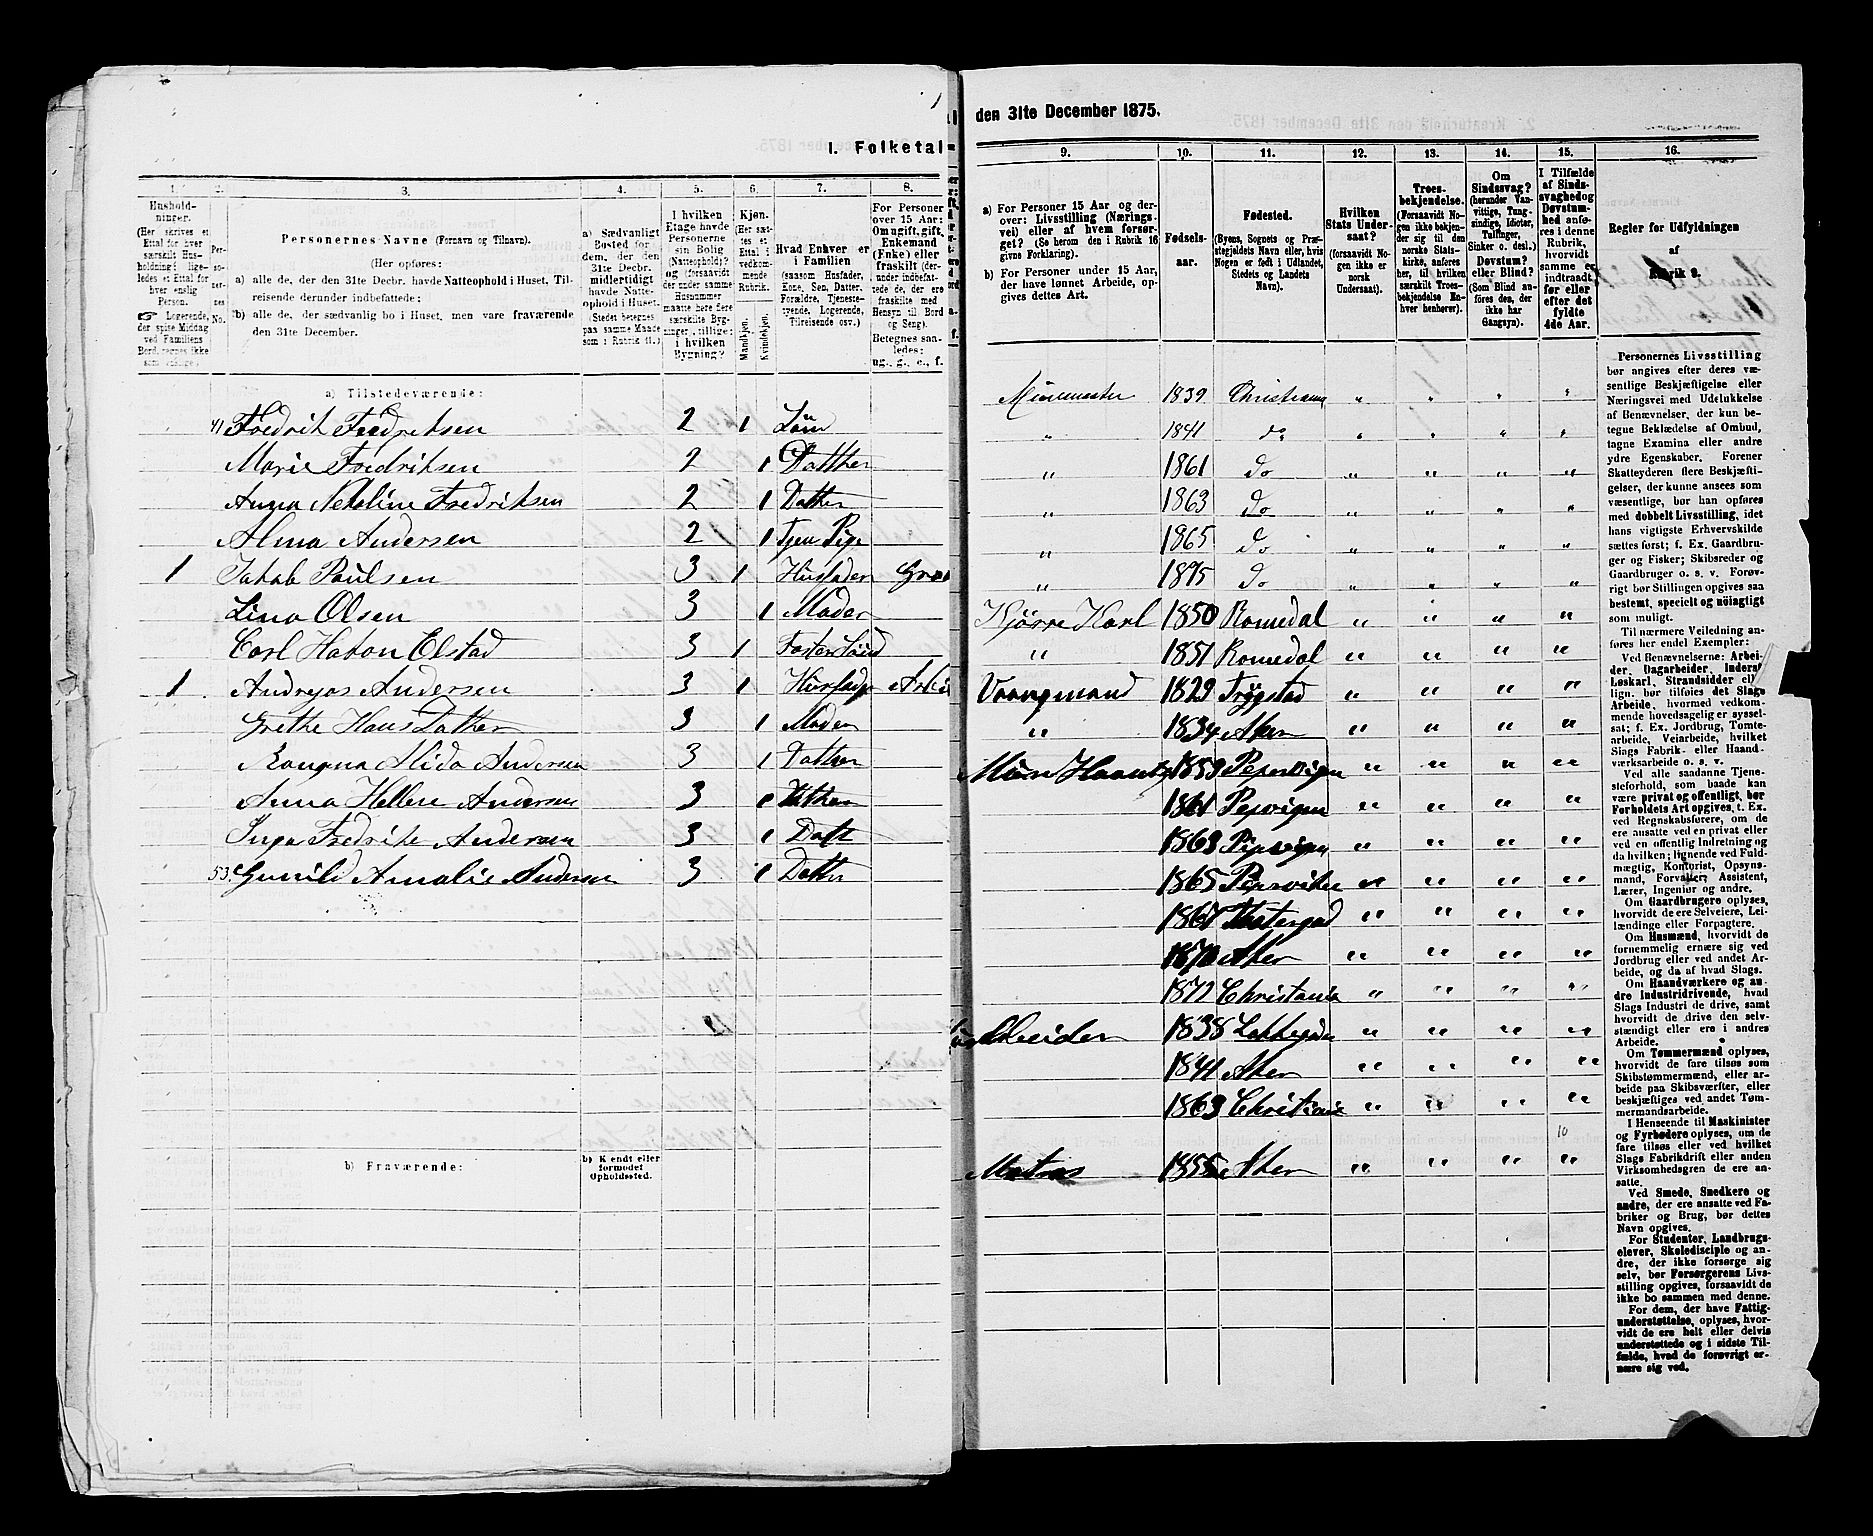 I. Folketal
1.
2.
3.
4.
5.
6.
7.
8.
Hushold-
ninger.
(Her skrives et
Ettal for hver
særskilt Hus-
holdning i lige-
ledes et Ettal for
hver enslig
Person.
☞ Logerende,
der spise Middag
ved Familiens
Bord, regnes ikke
som enslige.)
Personernes Navne (Fornavn og Tilnavn).
(Her opføres:
a) alle de, der den 31te Decbr. havde Natteophold i Huset, Til-
reisende derunder indbefattede;
b) alle de, der sædvanlig bo i Huset, men vare fraværende
den 31te December.
a) Sædvanligt
Bosted for
dem, der den
31te Decbr.
midlertidigt
havde Natte-
ophold i Huset.
(Stedet betegnes
paa samme Maade
som i Rubrik 11.)
I hvilken
Etage havde
Personerne
sin Bolig
(Natteophold)?
og (forsaavidt
der under samme
Husnummer
maatte høre flere
særskilte Byg-
ninger, tillige:
i hvilken
Bygning?
Kjøn.
(Her sæt-
tes et
Ettal i
vedkom-
mende
Rubrik.
Mandkjøn.
Kvindekjøn.
Hvad Enhver er
i Familien
(saasom Husfader,
Kone, Søn, Datter,
Forældre, Tjeneste-
tyende, Logerende,
Tilreisende osv.)
For Personer
over 15 Aar:
Om ugift, gift,
Enkemand
(Enke) eller
fraskilt (der-
under indbefat-
tede de, der ere
fraskilte med
Hensyn til Bord
og Seng).
Betegnes saa-
ledes:
ug., g., e., f.
a) Tilstedeværende:
41 Fredrik Fredriksen 2 1 Sön
Marie Fredriksen 2 1 Datther
Anna Nekoline Fredriksen 2 1 Dather
Alma Andersen 2 1 Tjen Pige
1 Jakob Paulsen 3 1 Husfader
Lina Olsen 3 1 Moder
Carl Hakon Elstad 3 1 Foster
1 Andreas Andersen 3 1 Husfader
Grethe Hans Dather 3 1 Moder
Alida Andersen 3 1 Dather
Anna Hellene Andersen 3 1 Dather
Inga Fredrike Andersen 3 1 Datt
53 Gunild Amalie Andersen 3 1 Datter
b) Fraværende:
b) Kjendt eller
formodet
Opholdssted.
den 31te December 1875.
9.
10.
11.
12.
13.
14.
15.
16.
a) For Personer 15 Aar og der-
over: Livsstilling (Nærings-
vei) eller af hvem forsør-
get? (Se herom den i Rubrik 16
givne Forklaring).
b) For Personer under 15 Aar,
der have lønnet Arbeide, op-
gives dettes Art.
Fødsels-
aar.
Fødested.
(Byens, Sognets og Præ-
stegjeldets Navn eller, hvis
Nogen er født i Udlandet,
Stedets og Landets
Navn).
Hvilken
Stats Under-
saat?
(forsaavidt No-
gen ikke er
norsk
Undersaat).
Troes-
bekjendelse.
(Forsaavidt No-
gen ikke bekjen-
der sig til den
norske Stats-
kirke, anføres
her, til hvilken
særskilt Troes-
bekjendelse En-
hver henhører).
Om
Sindssvag?
(herunder Van-
vittige, Tung-
sindige, Idioter,
Tullinger,
Sinker o. desl.)
Døvstum?
eller Blind?
(Som Blind an-
føres den, der
ikke har
Gangsyn).
I Tilfælde
af Sinds-
svaghed og
Døvstum-
hed anfø-
res i denne
Rubrik,
hvorvidt
samme er
indtraadt
før eller
efter det
fyldte
4de Aar.
Regler for Udfyldningen
af
Rubrik 9.
Murmester 1839 Christiania " " " "
" 1841 do " " " "
" 1861 do " " " "
" 1863 do " " " "
" 1865 do " " " "
" 1875 do " " " "
Kjörre Karl 1850 Romedal " " " "
" 1851 Romedal " " " "
Vongmand 1829 Trögstad " " " "
" 1834 Aker " " " "
1853 Pepervigen " " " "
1861 Pepvigen " " " "
1863 Pipvigen " " " "
1865 Pepsviken " " " "
1867 " " " "
1870 Aker " " " "
1872 Christania " " " "
Arbeider 1838 " " " "
1841 Aker " " " "
1863 Christiania " " " "
10
Matros 1855 Aker " " " "
Personernes Livsstilling
bør angives efter deres væ-
sentlige Beskjæftigelse eller
Næringsvei med Udelukkelse
af Benævnelser, der kun be-
tegne Beklædelse af Ombud,
tagne Examina eller andre
ydre Egenskaber. Forener
Skatteyderen flere Beskjæfti-
gelser, der kunne ansees som
væsentlige, bør han opføres
med dobbelt Livsstilling, idet
hans vigtigste Erhvervskilde
sættes først; f. Ex. Gaardbru-
ger og Fisker; Skibsreder og
Gaardbruger o. s. v. Forøv-
rigt bør Stillingen opgives saa
bestemt, specielt og nöiagtigt
som muligt.
Til nærmere Veiledning an-
føres her endel Exempler:
Ved Benævnelserne: Arbei-
der, Dagarbeider, Inderst,
Løskarl, Strandsidder el-
lign. bør tilføies det Slags
Arbeide, hvormed vedkom-
mende hovedsagelig er syssel-
sat; f. Ex. Jordbrug, Tomte-
arbeide, Veiarbeide, hvilket
Slags Fabrik- eller Haand-
værksarbeide o. s. v.
Ved alle saadanne Tjene-
steforhold, som baade kan
være privat og offentligt, bør
Forholdets Art opgives, t. Ex.
ved Regnskabsførere, om de
ere ansatte ved en privat eller
ved en offentlig Indretning og
da hvilken; lignende ved Fuld-
mægtig, Kontorist, Opsyns-
mand, Forvalter, Assistent,
Lærer, Ingeniør og andre.
Om Gaardbrugere oplyses,
hvorvidt de ere Selveiere, Lei-
lændinge eller Forpagtere.
Om Husmænd, hvorvidt de
fornemmelig ernære sig ved
Jordbrug eller ved andet Ar-
beide, og da af hvad Slags.
Om Haandværkere og an-
dre Industridrivende, hvad
Slags Industri de drive, samt
hvorvidt de drive den selv-
stændigt eller ere i andres
Arbeide.
Om Tømmermænd oplyses,
hvorvidt de fare tilsøs som
Skibstømmermænd, eller ar-
beide paa Skibsværfter, eller
beskjæftiges ved andet Tøm-
mermandsarbeide.
I Henseende til Maskinister
og Fyrbødere oplyses, om de
fare tilsøs eller ved hvilket
Slags Fabrikdrift eller anden
Virksomhedsgren de ere an-
satte.
Ved Smede, Snedkere og
andre, der ere ansatte ved Fa-
briker og Brug, bør dettes
Navn opgives.
For Studenter, Landbrugs-
elever, Skoledisciple og an-
dre, der ikke forsørge sig
selv, bør Forsørgerens Livs-
stilling opgives, forsaavidt de
ikke bo sammen med denne.
For dem, der have Fattig-
understøttelse, oplyses, hvor-
vidt de ere helt eller delvis
understøttede og i sidste Til-
fælde, hvad de forøvrigt er-
nære sig ved.